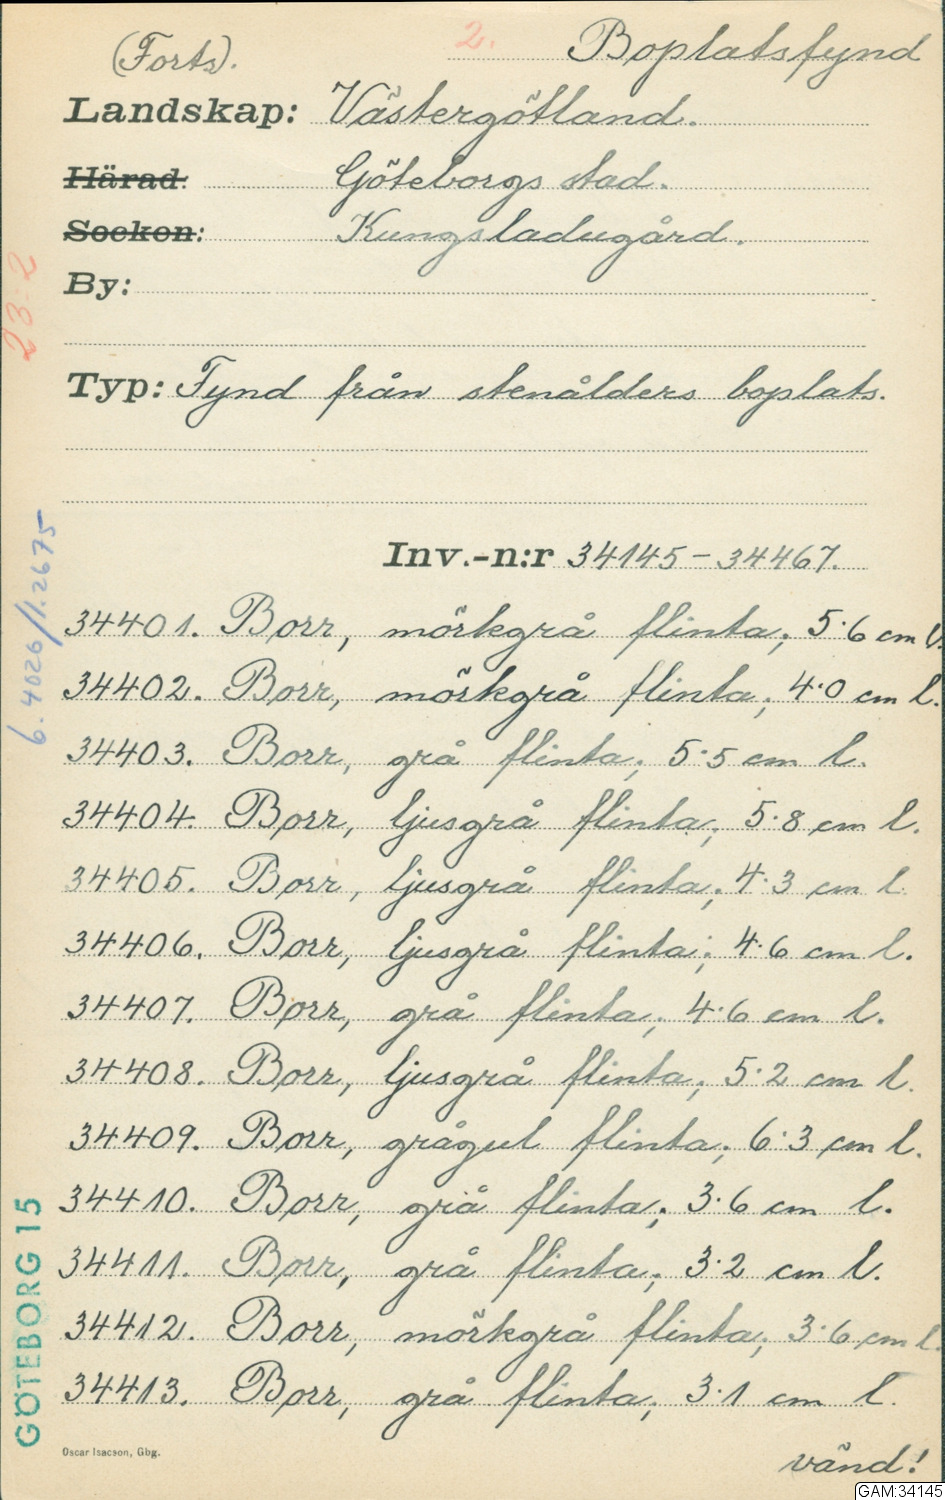 (Forts).
2. Boplatsfynd
Landskap: Västergötland.
Härad: Göteborgs stad.
Socken: Kungsladugård.
By:
Typ: Fynd från stenålders boplats.
Inv.-n:r 34145-34467.
34401. Borr, mörkgrå flinta; 5.6 cm l.
34402. Borr, mörkgrå flinta; 4.0 cm l.
34403. Borr, grå flinta; 5.5 cm l.
34404. Borr, ljusgrå flinta; 5.8 cm l.
34405. Borr, ljusgrå flinta; 4.3 cm l.
34406. Borr, ljusgrå flinta; 4.6 cm l.
34407. Borr, grå flinta; 4.6 cm l.
34408. Borr, ljusgrå flinta; 5.2 cm l.
34409. Borr, grågul flinta; 6.3 cm l.
34410. Borr, grå flinta; 3.6 cm l.
34411. Borr, grå flinta; 3.2 cm l.
34412. Borr, mörkgrå flinta; 3.6 cm l.
34413. Borr, grå flinta; 3.1 cm l.
vänd!
Oscar Isacson, Gbg.
23-2
6.4026/1.2675
GÖTEBORG 15
GAM:34145